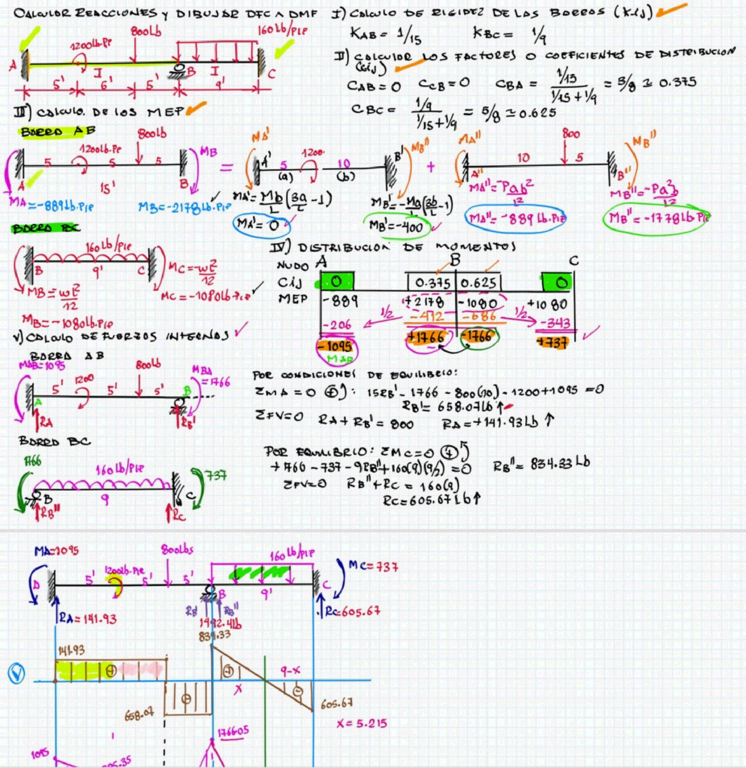 CALCULAR REACCIONES Y DIBUJAR DFC ∧ DMF
160 lb/PIE
1200lb.Pie
800lb
A
I
B
I
C
5'
6'
5'
9'
I) CALCULO DE RIGIDEZ DE LAS BARRAS (Kij)
KAB = 1/15
KBC = 1/9
II) CALCULAR LOS FACTORES O COEFICIENTES DE DISTRIBUCION (Cij)
CAB = 0
CCB = 0
CBA = (1/15)/(1/15+1/9) = 3/8 ≅ 0.375
CBC = (1/9)/(1/15+1/9) = 5/8 ≅ 0.625
III) CALCULO DE LOS MEP
BARRA AB
1200lb.Pie
800lb
MB
A
5
5
5
B
15'
MA=-889Lb.Pie
MB=-2178Lb.Pie
=
MA'
A'
5
(a)
1200
10
(b)
MB'
B'
MA'=Mb/L(3a/L-1)
MA'=0
MB'=-Ma/L(3b/L-1)
MB'=-400
+
MA''
A''
10
800
5
MB''
B''
MA''=Pab²/L²
MA''=-889 Lb.Pie
MB''=-Pa²b/L²
MB''=-1778Lb.Pie
BARRA BC
160lb/Pie
B
9'
C
MB=wl²/12
MB=-1080lb.Pie
MC=-wl²/12
MC=-1080lb.Pie
IV) DISTRIBUCION DE MOMENTOS
NUDO A B C
Cij 0 0.375 0.625 0
MEP -889 +2178 -1080 +1080
-206 1/2 -412 -686 1/2 -343
-1095 +1766 -1766 +737
MAB
V) CALCULO DE FUERZAS INTERNAS
BARRA AB
MAB=1095
1200
800lb
MBA=1766
5'
5'
5'
A
B
RA
RB'
POR CONDICIONES DE EQUILIBRIO:
ΣMA=0 (+): 15RB'-1766-800(10)-1200+1095=0
RB'= 658.07Lb↑
ΣFV=0 RA+RB'=800 RA=+141.93Lb↑
BARRA BC
1766
160lb/Pie
737
B
9
C
RB''
RC
POR EQUILIBRIO: ΣMC=0 (+)
+1766-737-9RB''+160(9)(9/2)=0 RB''=834.33Lb
ΣFV=0 RB''+RC=160(9)
RC=605.67Lb↑
MA=1095
1200lb.Pie
800lbs
160lb/PIE
MC=737
5'
5'
5'
B
9'
C
RA=141.93
RB'
RB''
1492.4lb
RC=605.67
834.33
141.93
V
+
-
+
-
658.07
x
9-x
605.67
X=5.215
1766.05
1095